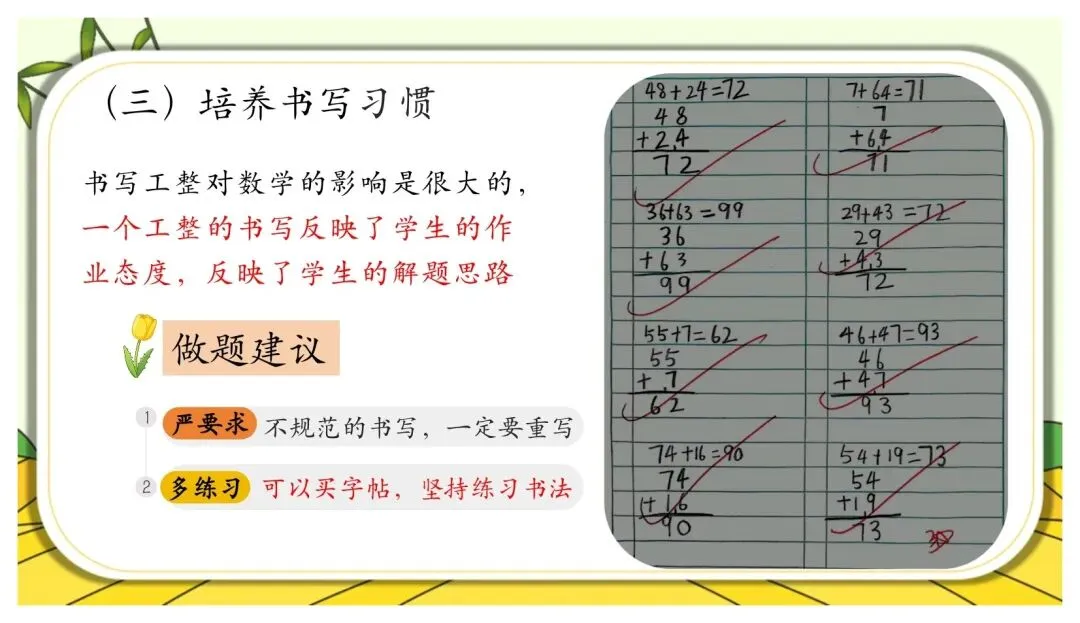 （三）培养书写习惯
书写工整对数学的影响是很大的，
一个工整的书写反映了学生的作
业态度，反映了学生的解题思路
做题建议
1 严要求 不规范的书写，一定要重写
2 多练习 可以买字帖，坚持练习书法
48+24=72
48
+24
72
7+64=71
7
+64
71
36+63=99
36
+63
99
29+43=72
29
+43
72
55+7=62
55
+7
62
46+47=93
46
+47
93
74+16=90
74
+16
90
54+19=73
54
+19
73